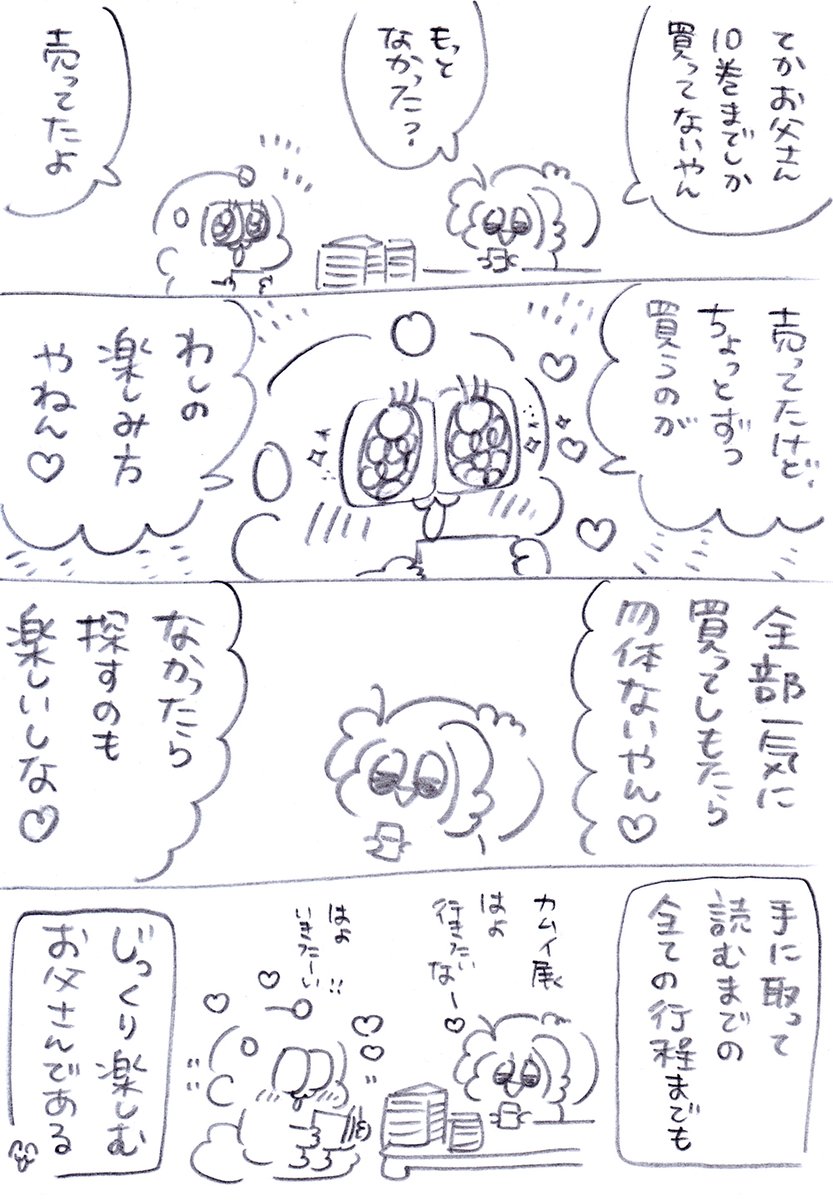 てかお父さん
10巻までしか
買ってないやん
もっと
なかった?
売ってたよ
売ってたけど、
ちょっとずつ
買うのが
わしの
楽しみ方
やねん♡
全部一気に
買ってしもたら
勿体ないやん♡
なかったら
探すのも
楽しいしな♡
手に取って
読むまでの
全ての行程までも
カムイ展
はよ
行きたいなー♡
はよ
いきたーい!!
じっくり楽しむ
お父さんである